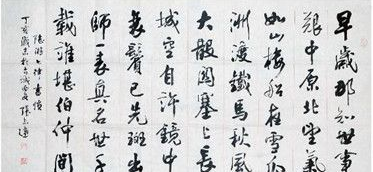 早歲那知世事
艱中原北望氣
如山樓船夜雪瓜
洲渡鐵馬秋風
大散關塞上長
城空自許鏡中
衰鬢已先斑出
師一表真名世千
載誰堪伯仲間
陸游七律書憤
丁亥歲末於古